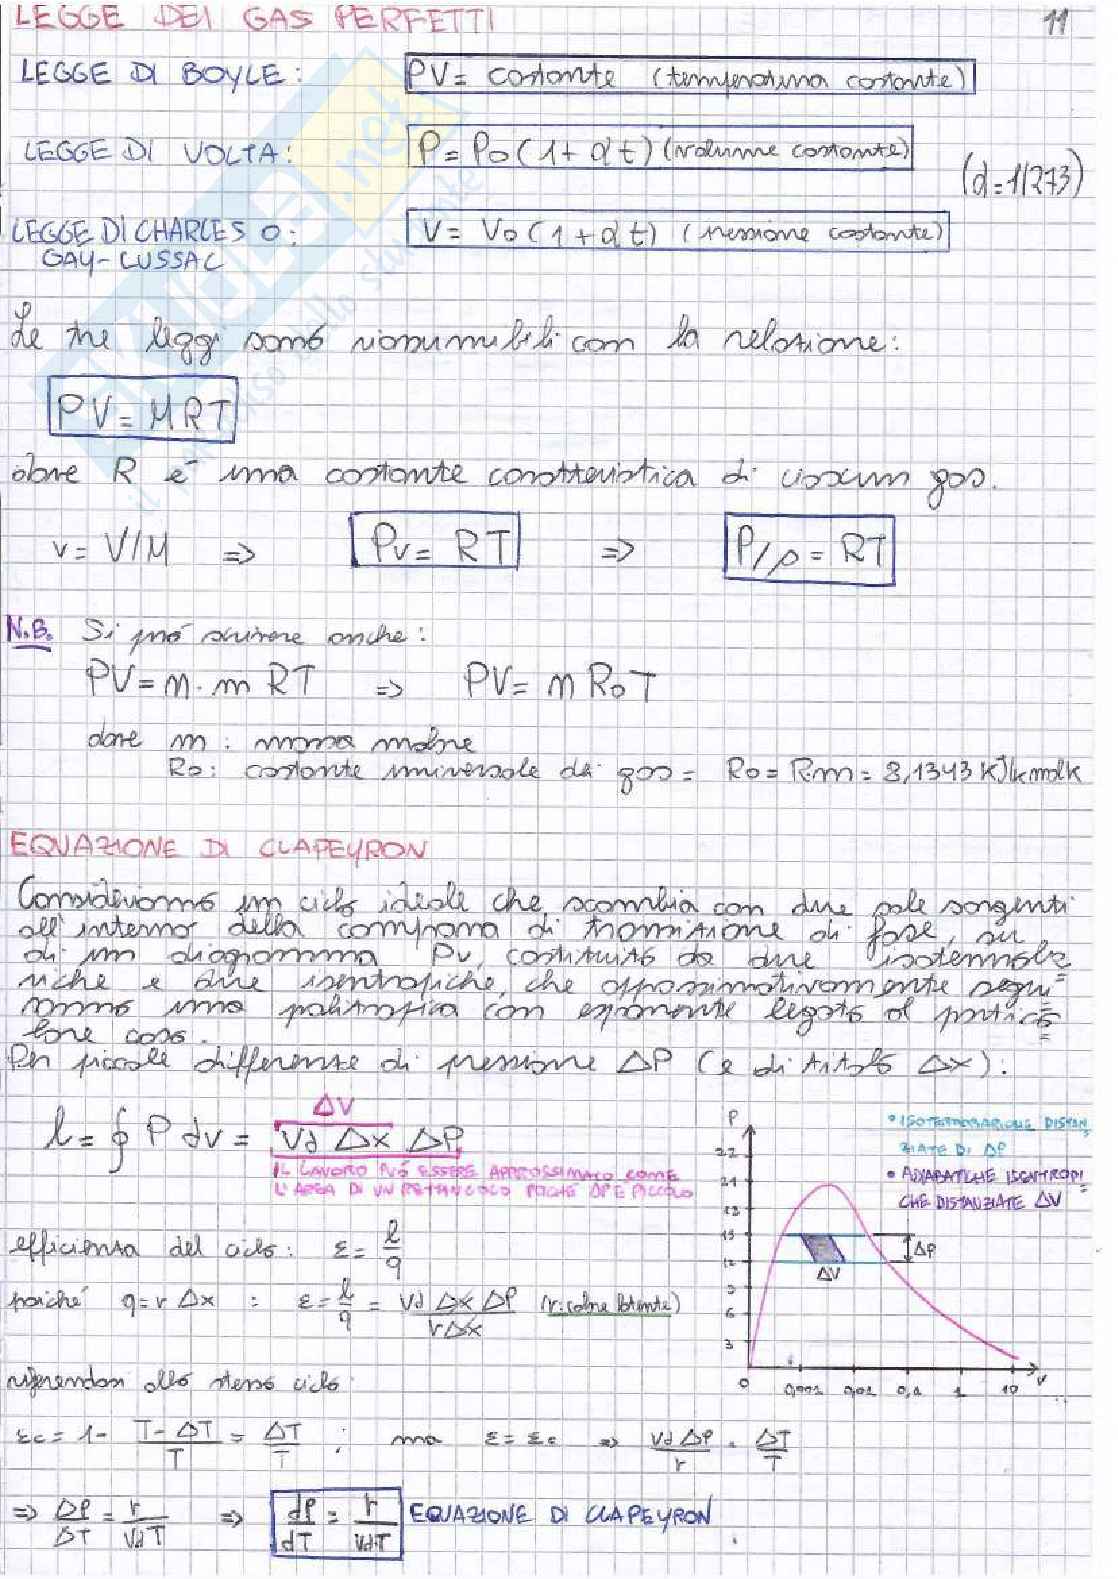 LEGGE DEI GAS PERFETTI 11
LEGGE DI BOYLE: PV = costante (temperatura costante)
LEGGE DI VOLTA: P = P0 (1 + αt) (volume costante)
(α = 1/273)
LEGGE DI CHARLES O: V = V0 (1 + αt) (pressione costante)
GAY-LUSSAC
Le tre leggi sono riassumibili con la relazione:
PV = MRT
dove R è una costante caratteristica di ciascun gas.
v = V/M => Pv = RT => P/ρ = RT
N.B. Si può scrivere anche:
PV = n · m RT => PV = n R0 T
dove m : massa molare
R0 : costante universale dei gas = R0 = R·m = 8,1343 KJ/kmolk
EQUAZIONE DI CLAPEYRON
Consideriamo un ciclo ideale che scambia con due sole sorgenti
all'interno della campana di transizione di fase, su
di un diagramma Pv, costituito da due isotermobariche
riche e due isentropiche, che approssimativamente segui-
ranno una politropica con esponente legato al partico-
lare caso.
Per piccole differenze di pressione ΔP (e di titolo Δx):
ΔV
l = ∮ P dv = Vd Δx ΔP
IL LAVORO PUÒ ESSERE APPROSSIMATO COME
L'AREA DI UN RETTANGOLO POICHÉ ΔP È PICCOLO
P
• ISOTERMOBARICHE DISTAN
ZIATE DI ΔP
• ADIABATICHE ISENTROPI-
CHE DISTANZIATE ΔV
22
21
18
15
12
9
6
3
0
ΔP
ΔV
0,001 0,01 0,1 1 10 v
efficienza del ciclo: ε = l/q
poiché q = r Δx : ε = l/q = Vd Δx ΔP / rΔx (r: calore latente)
riferendosi allo stesso ciclo:
εc = 1 - T - ΔT / T = ΔT / T ; ma ε = εc => Vd ΔP / r = ΔT / T
=> ΔP/ΔT = r/VdT => dP/dT = r/VdT EQUAZIONE DI CLAPEYRON